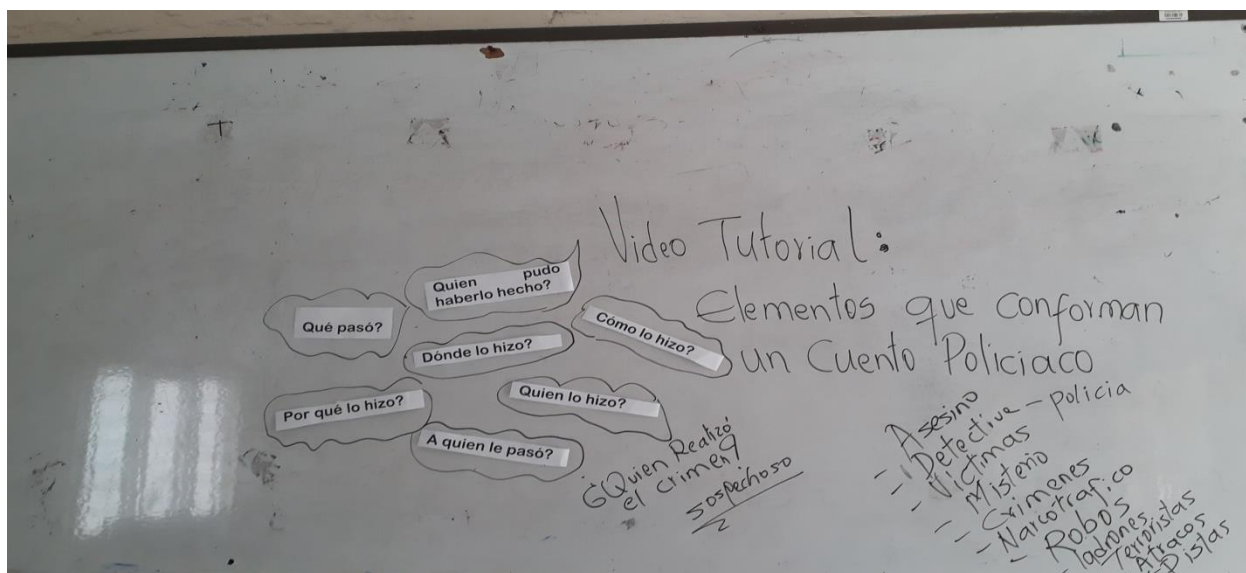 Video Tutorial:
Elementos que conforman
un Cuento Policiaco
Quien pudo
haberlo hecho?
Qué pasó?
Cómo lo hizo?
Dónde lo hizo?
Por qué lo hizo?
Quien lo hizo?
A quien le pasó?
¿Quien Realizó
el crimen?
sospechoso
- Asesino
- Detective - policia
- Victimas
- Misterio
- Crimenes
- Narcotrafico
- Robos
- Ladrones
- Terroristas
Atracos
- Pistas